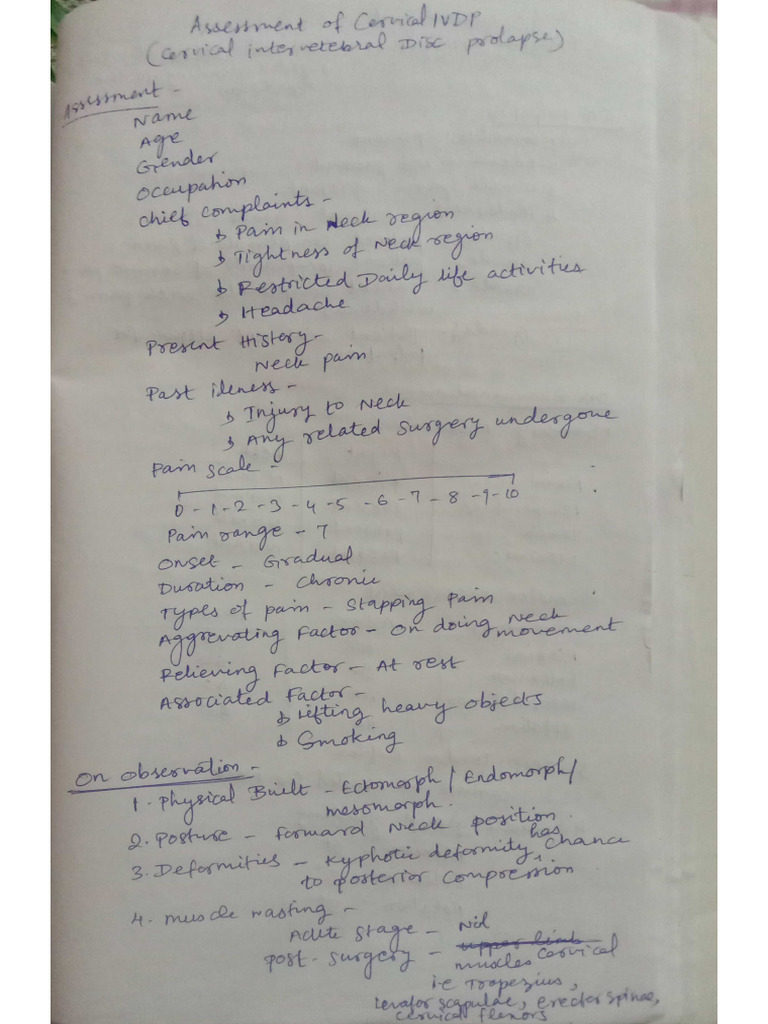 Assessment of Cervical IVDP
(Cervical intervetebral Disc prolapse)
Assessment -
Name
Age
Gender
Occupation
Chief complaints -
↳ Pain in Neck region
↳ Tightness of Neck region
↳ Restricted Daily life activities
↳ Headache
Present History -
Neck pain
Past ileness -
↳ Injury to Neck
↳ Any related surgery undergone
Pain scale -
0 - 1 - 2 - 3 - 4 - 5 - 6 - 7 - 8 - 9 - 10
Pain range - 7
Onset - Gradual
Duration - Chronic
Types of pain - Stapping Pain
Aggrevating Factor - On doing Neck movement
Relieving Factor - At rest
Associated Factor -
↳ Lifting heavy objects
↳ Smoking
On Observation -
1. Physical Built - Ectomorph / Endomorph /
mesomorph.
2. Posture - Forward Neck position.
3. Deformities - Kyphotic deformity has chance
to posterior compression
4. Muscle wasting -
Acute stage - Nil
Post-surgery - upper limb cervical
muscles
i.e Trapezius,
Levator scapulae, erector spinae,
cervical flexors